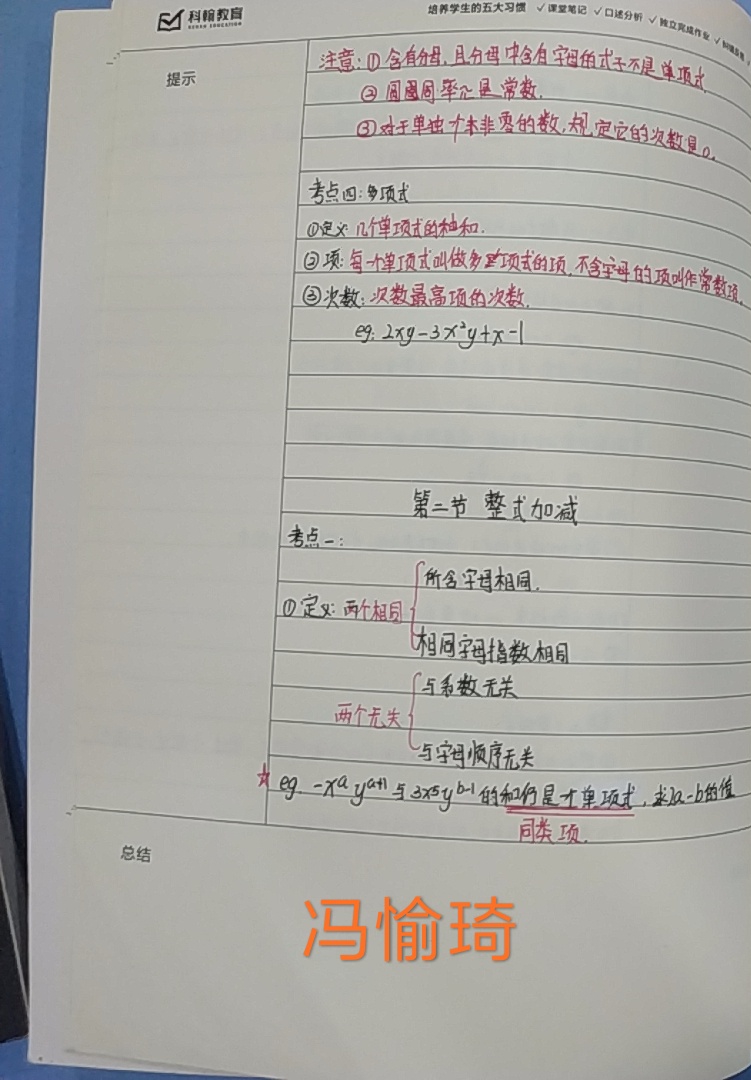 科翰教育
KEHAN EDUCATION
培养学生的五大习惯 ✓课堂笔记 ✓口述分析 ✓独立完成作业
提示
注意:①含有分母,且分母中含有字母的式子不是单项式
②圆周率π是常数.
③对于单独个非零的数,规定它的次数是0.
考点四:多项式
①定义:几个单项式的和.
②项:每一个单项式叫做多项式的项,不含字母的项叫作常数项.
③次数:次数最高项的次数.
eg: 2xy-3x²y+x-1
第二节 整式加减
考点一:
所含字母相同.
①定义:两个相同
相同字母指数相同
与系数无关
两个无关
与字母顺序无关
☆ eg -xᵃyᵃ⁺¹与3x⁵yᵇ⁻¹的和仍是个单项式,求a-b的值
同类项.
总结
冯愉琦